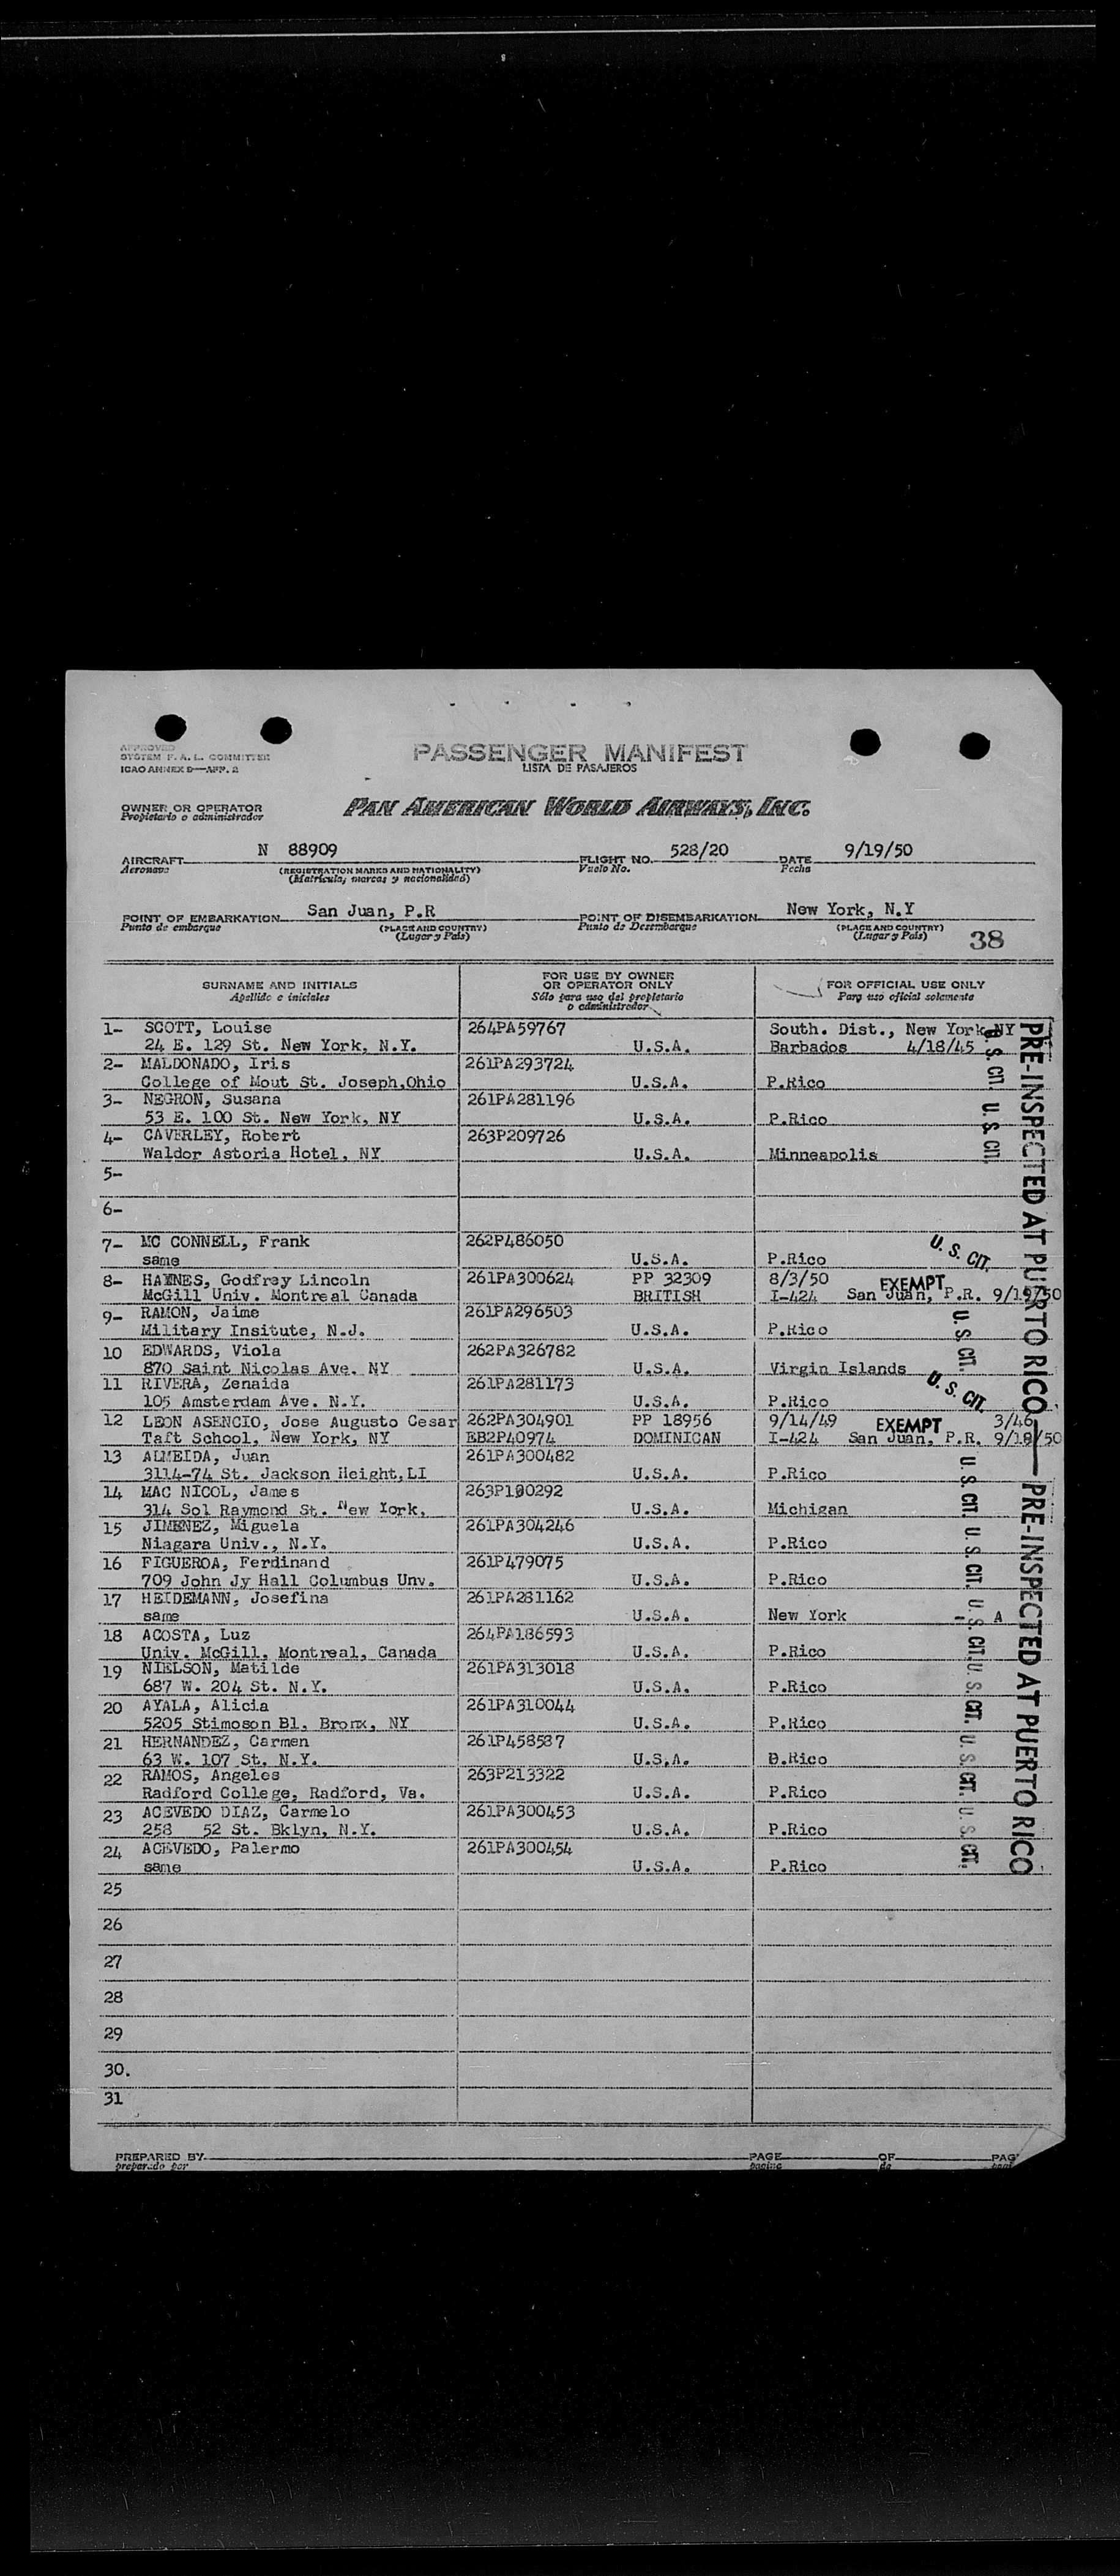 APPROVED
SYSTEM F. A. L. COMMITTEE
ICAO ANNEX 9—APP. 2
PASSENGER MANIFEST
LISTA DE PASAJEROS
OWNER OR OPERATOR
Propietario o administrador
PAN AMERICAN WORLD AIRWAYS, INC.
AIRCRAFT N 88909 FLIGHT NO. 528/20 DATE 9/19/50
Aeronave (REGISTRATION MARKS AND NATIONALITY) Vuelo No. Fecha
(Matrícula, marcas y nacionalidad)
POINT OF EMBARKATION San Juan, P.R POINT OF DISEMBARKATION New York, N.Y
Punto de embarque (PLACE AND COUNTRY) Punto de Desembarque (PLACE AND COUNTRY)
(Lugar y País) (Lugar y País) 38
SURNAME AND INITIALS
Apellido e iniciales
FOR USE BY OWNER
OR OPERATOR ONLY
Sólo para uso del propietario
o administrador
FOR OFFICIAL USE ONLY
Para uso oficial solamente
1- SCOTT, Louise 264PA59767 South. Dist., New York NY
24 E. 129 St. New York, N.Y. U.S.A. Barbados 4/18/45
2- MALDONADO, Iris 261PA293724
College of Mout St. Joseph,Ohio U.S.A. P.Rico
3- NEGRON, Susana 261PA281196
53 E. 100 St. New York, NY U.S.A. P.Rico
4- CAVERLEY, Robert 263P209726
Waldor Astoria Hotel, NY U.S.A. Minneapolis
5-
6-
7- MC CONNELL, Frank 262P486050
same U.S.A. P.Rico U. S. CIT.
8- HAYNES, Godfrey Lincoln 261PA300624 PP 32309 8/3/50 EXEMPT
McGill Univ. Montreal Canada BRITISH I-424 San Juan, P.R. 9/19/50
9- RAMON, Jaime 261PA296503
Military Insitute, N.J. U.S.A. P.Rico
10 EDWARDS, Viola 262PA326782
870 Saint Nicolas Ave. NY U.S.A. Virgin Islands
11 RIVERA, Zenaida 261PA281173
105 Amsterdam Ave. N.Y. U.S.A. P.Rico U. S. CIT.
12 LEON ASENCIO, Jose Augusto Cesar 262PA304901 PP 18956 9/14/49 EXEMPT 3/46
Taft School, New York, NY EB2P40974 DOMINICAN I-424 San Juan, P.R. 9/18/50
13 ALMEIDA, Juan 261PA300482
3114-74 St. Jackson Height,LI U.S.A. P.Rico
14 MAC NICOL, James 263P190292
314 Sol Raymond St. New York, U.S.A. Michigan
15 JIMENEZ, Miguela 261PA304246
Niagara Univ., N.Y. U.S.A. P.Rico
16 FIGUEROA, Ferdinand 261P479075
709 John Jy Hall Columbus Unv. U.S.A. P.Rico
17 HEIDEMANN, Josefina 261PA281162
same U.S.A. New York - A
18 ACOSTA, Luz 264PA186593
Univ. McGill, Montreal, Canada U.S.A. P.Rico
19 NIELSON, Matilde 261PA313018
687 W. 204 St. N.Y. U.S.A. P.Rico
20 AYALA, Alicia 261PA310044
5205 Stimoson Bl. Bronx, NY U.S.A. P.Rico
21 HERNANDEZ, Carmen 261P458587
63 W. 107 St. N.Y. U.S.A. P.Rico
22 RAMOS, Angeles 263P213322
Radford College, Radford, Va. U.S.A. P.Rico
23 ACEVEDO DIAZ, Carmelo 261PA300453
258 52 St. Bklyn, N.Y. U.S.A. P.Rico
24 ACEVEDO, Palermo 261PA300454
same U.S.A. P.Rico
25
26
27
28
29
30.
31
U. S. CIT. U. S. CIT.
U. S. CIT.
U. S. CIT. U. S. CIT. U. S. CIT. U. S. CIT. U. S. CIT. U. S. CIT.
PRE-INSPECTED AT PUERTO RICO — PRE-INSPECTED AT PUERTO RICO
PREPARED BY PAGE OF PAG
preparado por pagina de